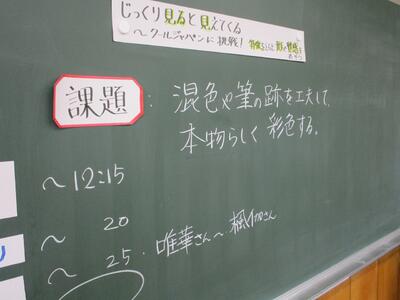 じっくり見ると見えてくる
～クールジャパンに挑戦！
課題：混色や筆の跡を工夫して、
本物らしく彩色する。
～12:15
～ 20
～ 25・唯華さん～